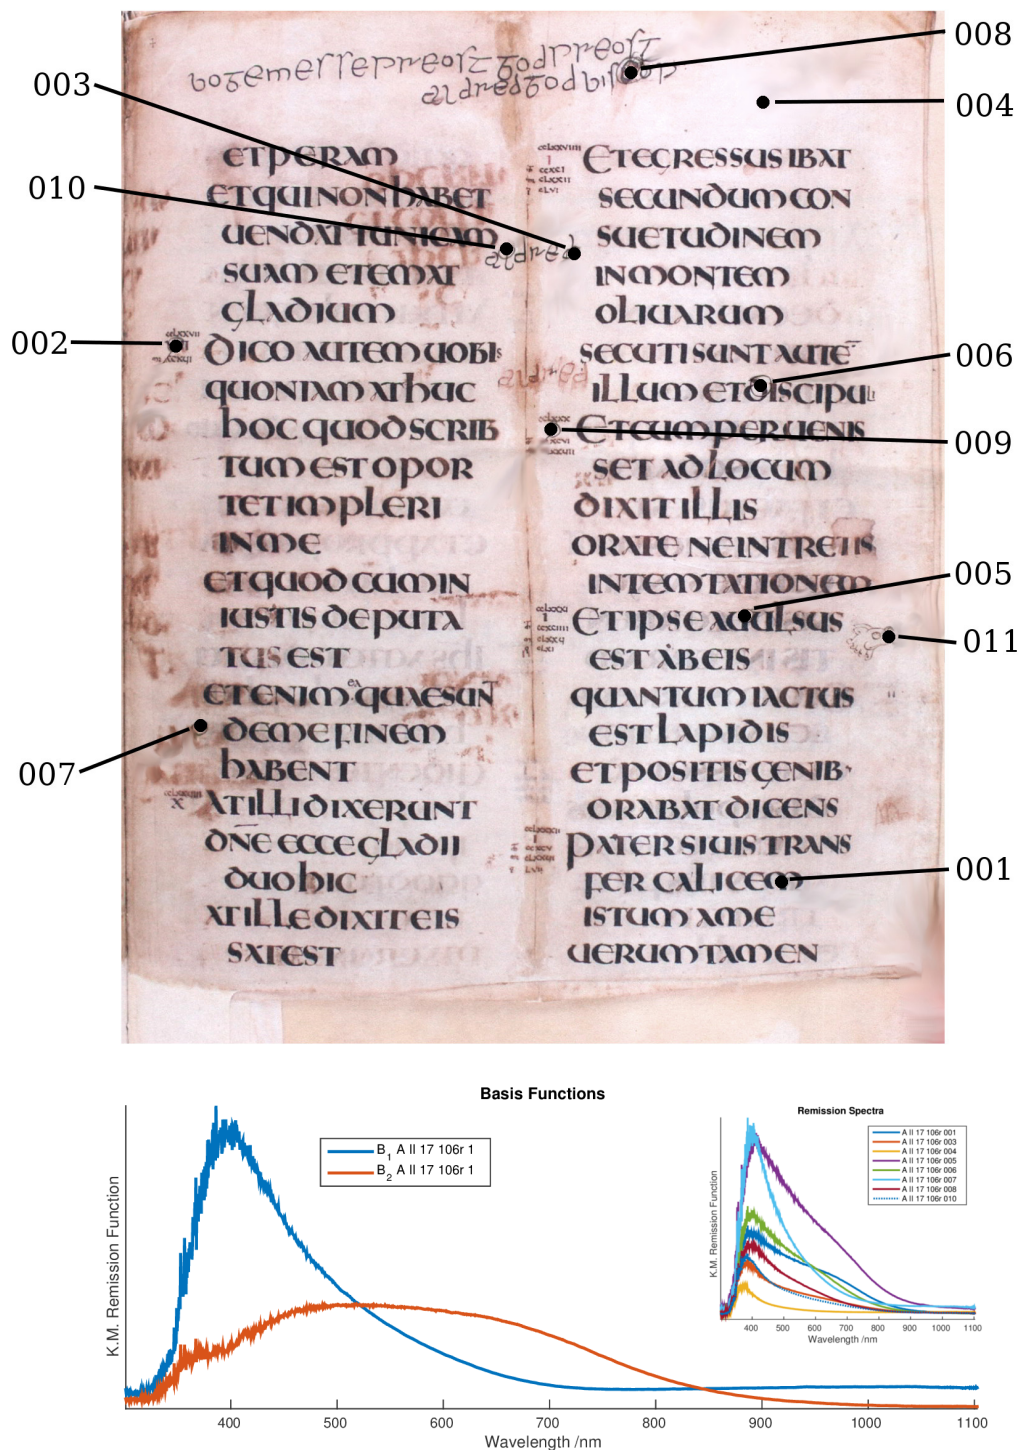 008
003
004
010
ETPERAM
ETQUI NON hABET
UENDAT TUNICAM
SUAM ETEMAT
GLADIUM
DICO AUTEM UOBIS
QUONIAM AThUC
hOC QUOD SCRIB
TUM EST OPOR
TET IMPLERI
IN ME
ETQUOD CUM IN
IUSTIS DEPUTA
TUS EST
ea
ETENIM QUAE SUNT
DEME FINEM
hABENT
X
AT ILLI DIXERUNT
DNE ECCE GLADII
DUO hIC
AT ILLE DIXIT EIS
SAT EST
ETEGRESSUS IBAT
SECUNDUM CON
SUETUDINEM
IN MONTEM
OLIUARUM
SECUTI SUNT AUTE
ILLUM ET DISCIPULI
ET CUM PERUENIS
SET AD LOCUM
DIXIT ILLIS
ORATE NE INTRETIS
IN TEMTATIONEM
ET IPSE AUULSUS
EST AB EIS
QUANTUM IACTUS
EST LAPIDIS
ET POSITIS GENIB
ORABAT DICENS
PATER SI UIS TRANS
FER CALICEM
ISTUM A ME
UERUM TAMEN
002
006
009
005
011
007
001
Basis Functions
K.M. Remission Function
B1 A II 17 106r 1
B2 A II 17 106r 1
400 500 600 700 800 900 1000 1100
Wavelength /nm
Remission Spectra
K.M. Remission Function
A II 17 106r 001
A II 17 106r 003
A II 17 106r 004
A II 17 106r 005
A II 17 106r 006
A II 17 106r 007
A II 17 106r 008
A II 17 106r 010
400 500 600 700 800 900 1000 1100
Wavelength /nm